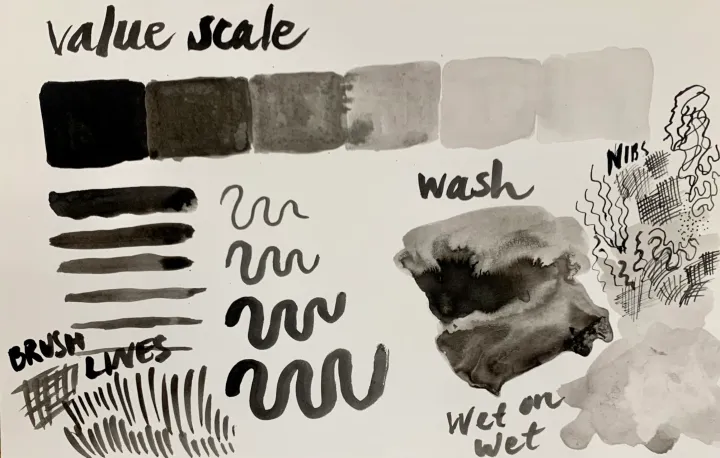 value scale
wash
NIBS
BRUSH
LINES
wet on
wet